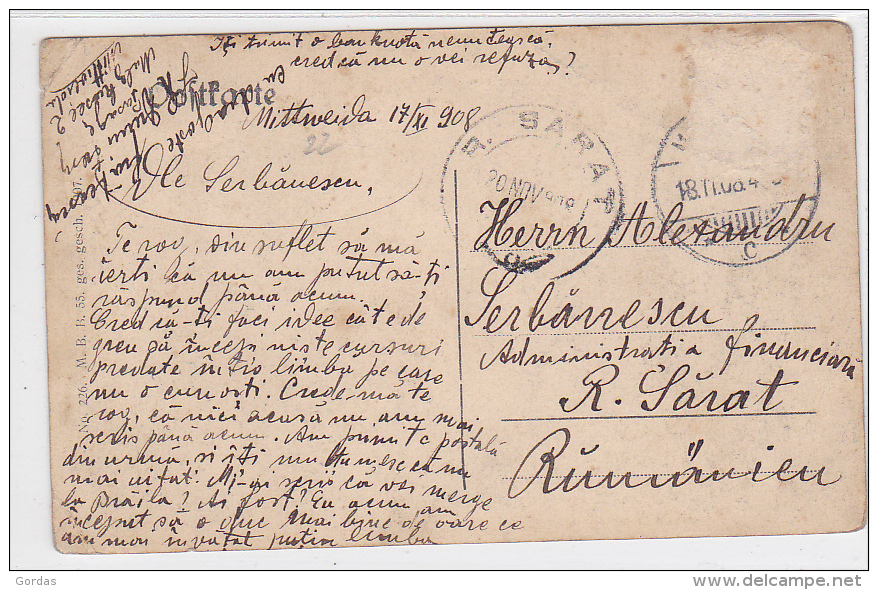 Iți trimit o banknotă nemțească,
cred că nu o vei refuza?
Postkarte
Mittweida 17/XI 908
22
Dle Serbănescu,
Te rog, din suflet să mă
ierți că nu am putut să-ți
răspund până acum.
Cred că-ți faci idee cât e de
greu să începi niște cursuri
predate într'o limbă pe care
nu o cunoști. Crede-mă te
rog, că nici acasă nu am mai
scris până acum. Am primit c. postală
din urmă, și îți mulțumesc că nu
mai uitat. Mi-ai scris că vei merge
la Brăila? Ai fost? Eu acum am
început să o duc mai bine de oare ce
am mai învățat puțin limba
No. 226. M. B. B. 55. ges. gesch. 07.
R. SARAT
20 NOV 908
18.11.08.4
C
Herrn Alexandru
Serbănescu
Administratia financiară
R. Sărat
Rumänien
Gordas
delcampe.net